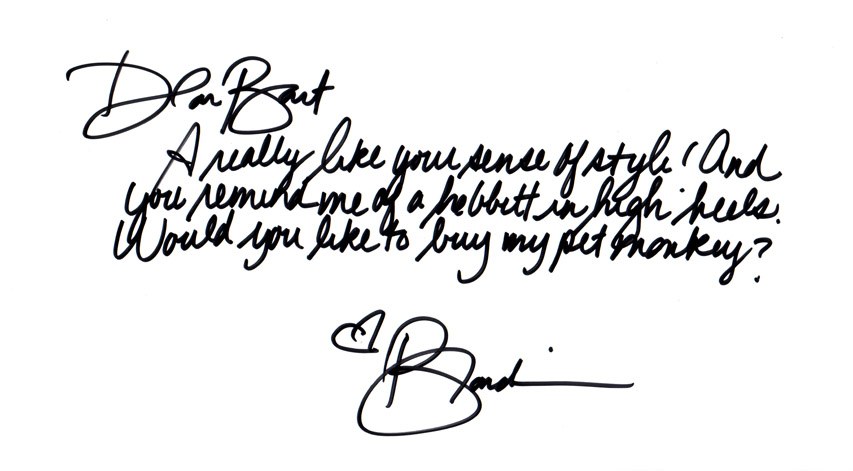 Dear Bart
A really like your sense of style! And
you remind me of a hobbitt in high heels.
Would you like to buy my pet monkey?